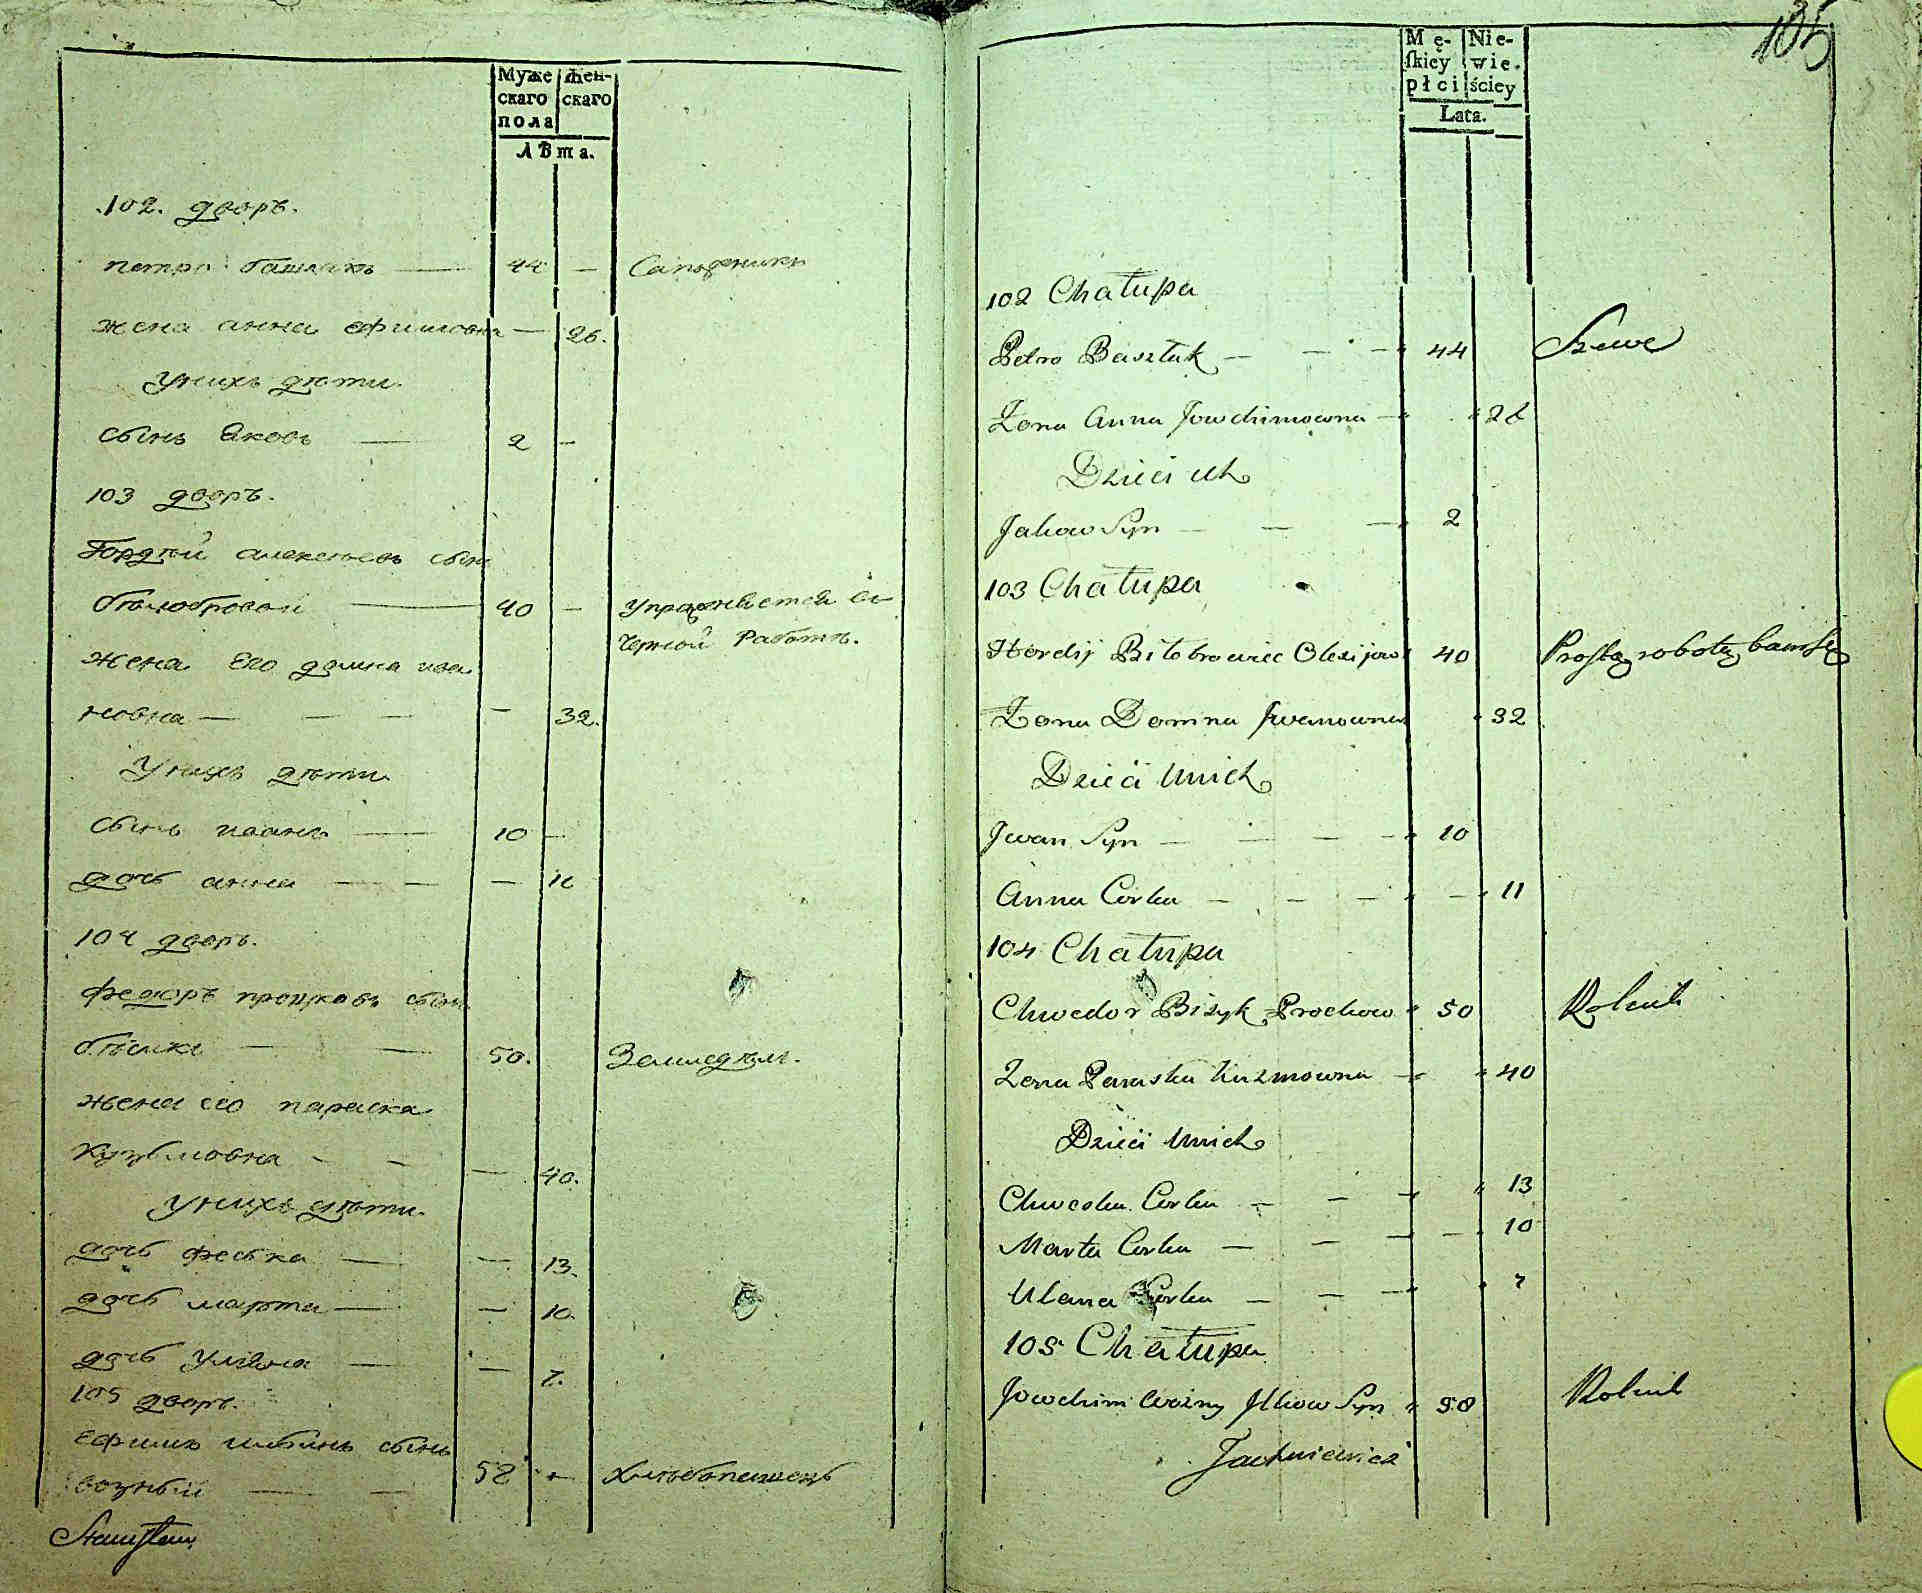 Муже
скаго
пола
Жен-
скаго
Лѣта.
102. дворъ.
петро башлакъ — 44 — Сапожникъ
жена анна ефимовна — 26.
У нихъ дѣти.
сынъ Яковъ — 2 —
103 дворъ.
Гордѣй алексѣевъ сынъ
бѣлобровой — 40 — упражняется въ
черной работѣ.
жена его домна ива
новна — — — — 32.
У нихъ дѣти
сынъ иванъ — 10 —
дочь анна — — — 11
104 дворъ.
федоръ прошковъ сынъ
— — 50. Земледѣл.
жена его параска
Кузьмовна — — — 40.
У нихъ дѣти.
дочь феська — — 13.
дочь марта — — 10.
дочь Уляна — — 7.
105 дворъ.
ефимъ сынъ
возный — — 58 — хлѣбопашецъ
Stanisław
135
Mę-
skiey
płci
Nie-
wie-
ściey
Lata.
102 Chałupa
Petro Baszłuk — — — 44 Szewc
Zona Anna Jowchimowna — 26
Dzieci Uh
Jakow Syn — — — 2
103 Chałupa
Hordij Biłobrowiec Olexijow 40 Prostą robotą bawi się
Zona Domna Jwanowna 32
Dzieci Unich
Jwan Syn — — — — 10
Anna Corka — — — — 11
104 Chałupa
Chwedor Bisyk Prochow 50 Rolnik
Zona Paraska Kuzmowna — 40
Dzieci Unich
Chweska Corka — — — 13
Marta Corka — — — — 10
Ulana Corka — — — 7
105 Chałupa
Jowchim Woźny Jlkow Syn 58 Rolnik
Jachniewicz